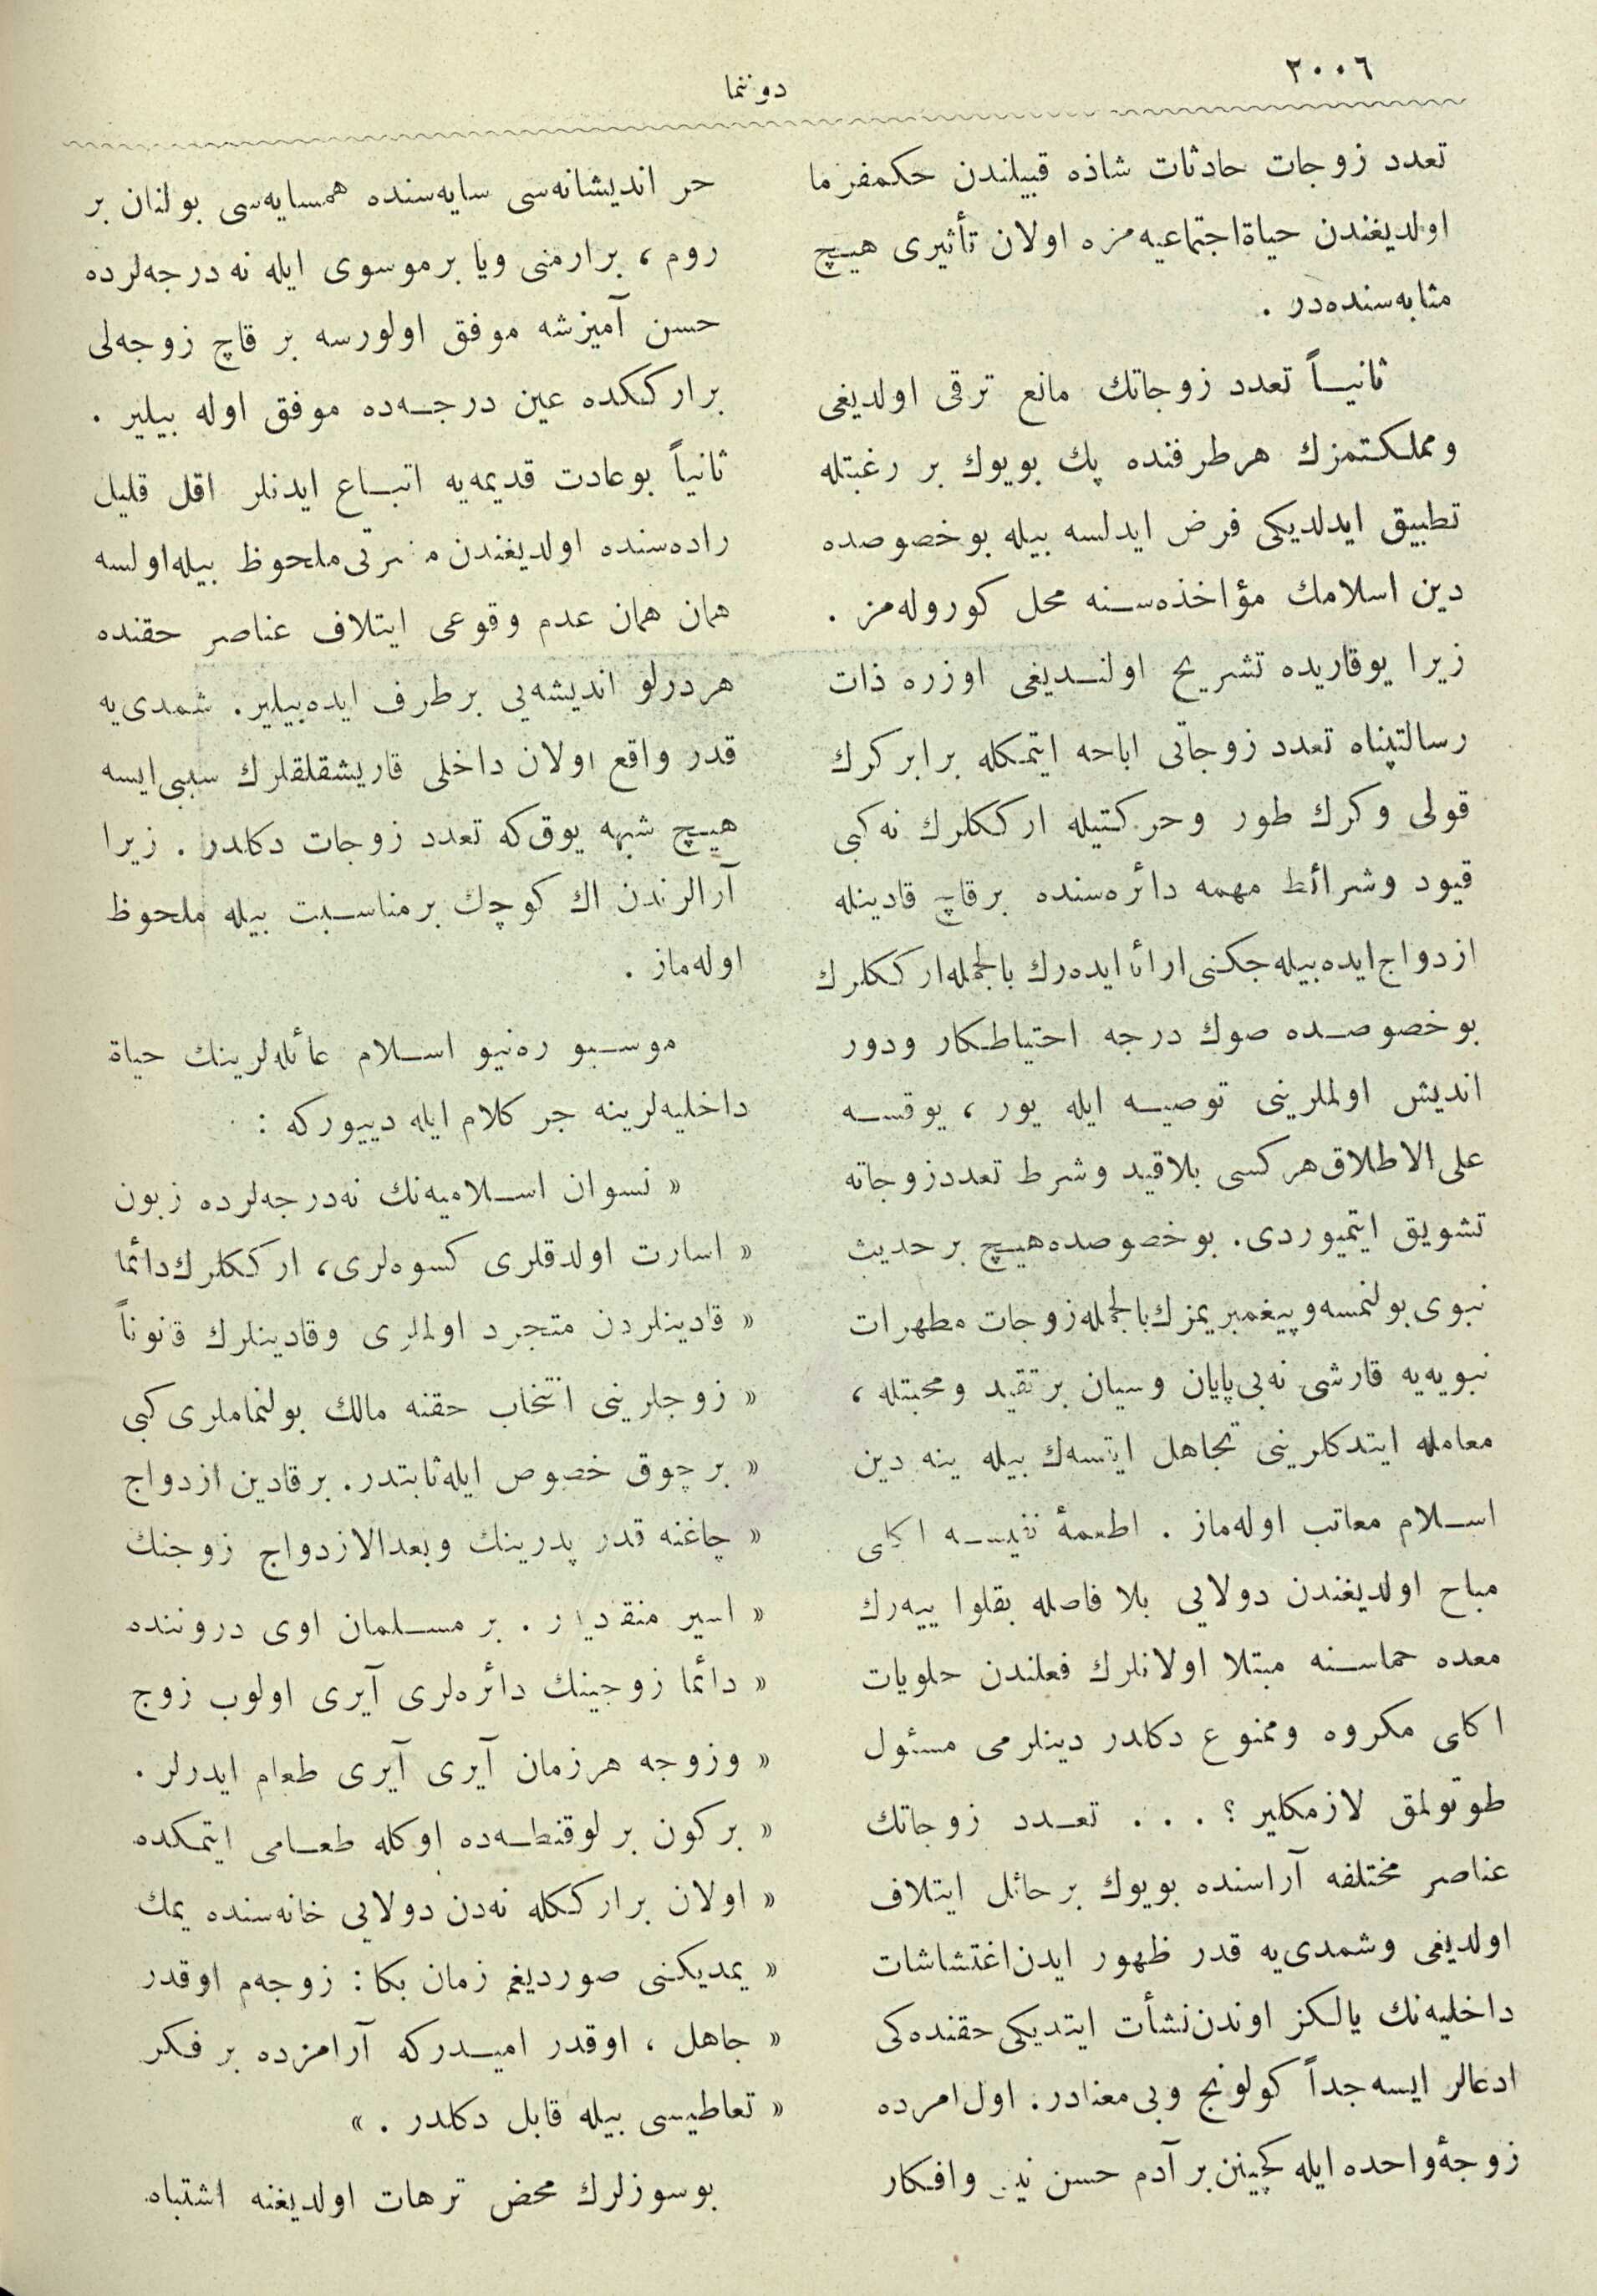 ٢٠٠٦
دوننما
تعدد زوجات حادثات شاذه قبيلندن حكمفرما
اولديغندن حياة اجتماعيه مزه اولان تأثيرى هيچ
مثابه سنده در .
ثانيــاً تعدد زوجاتك مانع ترقى اولديغى
ومملكتمزك هر طرفنده پك بويوك بر رغبتله
تطبيق ايدلديكى فرض ايدلسه بيله بو خصوصده
دين اسلامك مؤاخذه سنه محل كوروله مز .
زيرا يوقاريده تشريح اولنـديغى اوزره ذات
رسالتپناه تعدد زوجاتى اباحه ايتمكله برابر كرك
قولى وكرك طور وحركتيله ارككلرك نه كبى
قيود وشرائط مهمه دائره سنده برقاچ قادينله
ازدواج ايده بيله جكنى ارائه ايده رك بالجمله ارككلرك
بو خصوصـده صوك درجه احتياطكار ودور
انديش اولملرينى توصيـه ايله يور ، يوقسـه
على الاطلاق هركسى بلاقيد وشرط تعدد زوجاته
تشويق ايتميوردى. بو خصوصده هيچ بر حديث
نبوى بولنمسه و پيغمبريمزك بالجمله زوجات مطهرات
نبويه يه قارشى نه بى پايان وسيان بر تقيد ومحبتله ،
معامله ايتدكلرينى تجاهل ايتسه ك بيله ينه دين
اسـلام معاتب اوله ماز . اطعمۀ نفيسـه اكلى
مباح اولديغندن دولايى بلا فاصله بقلوا ييه رك
معده حماسـنه مبتلا اولانلرك فعلندن حلويات
اكلى مكروه وممنوع دكلدر دينلرمى مسئول
طوتولمق لازمكلير ؟ . . . تعـدد زوجاتك
عناصر مختلفه آراسنده بويوك بر حائل ايتلاف
اولديغى وشمدى يه قدر ظهور ايدن اغتشاشات
داخليه نك يالكز اوندن نشأت ايتديكى حقنده كى
ادعالر ايسه جداً كولونج وبى معنادر. اول امرده
زوجۀ واحده ايله كچينن بر آدم حسن نيت وافكار
حر انديشانه سى سايه سنده همسايه سى بولنان بر
روم ، بر ارمنى ويا بر موسوى ايله نه درجه لرده
حسن آميزشه موفق اولورسه بر قاچ زوجه لى
بر ارككده عين درجـه ده موفق اوله بيلير .
ثانياً بو عادت قديمه يه اتبـاع ايدنلر اقل قليل
راده سنده اولديغندن ملحوظ بيله اولسه
همان همان عدم وقوعى ايتلاف عناصر حقنده
هر درلو انديشه يى بر طرف ايده بيلير. شمدى يه
قدر واقع اولان داخلى قاريشقلقلرك سببى ايسه
هيـچ شبهه يوق كه تعدد زوجات دكلدر . زيرا
آرالرندن اك كوچك بر مناسـبت بيله ملحوظ
اوله ماز .
موسـيو ره نيو اسـلام عائله لرينك حياة
داخليه لرينه جر كلام ايله دييوركه :
« نسوان اسـلاميه نك نه درجه لرده زبون
« اسارت اولدقلرى كسوه لرى، ارككلرك دائما
« قادينلردن متجرد اولملرى وقادينلرك قانوناً
« زوجلرينى انتخاب حقنه مالك بولنماملرى كبى
« بر چوق خصوص ايله ثابتدر. بر قادين ازدواج
« چاغنه قدر پدرينك وبعدالازدواج زوجنك
« اسير منقاديدر . بر مسـلمان اوى دروننده
« دائما زوجينك دائره لرى آيرى اولوب زوج
« وزوجه هر زمان آيرى آيرى طعام ايدرلر .
« بر كون بر لوقنطـه ده اوكله طعـامى ايتمكده
« اولان بر ارككله نه دن دولايى خانه سنده يمك
« يمديكنى صورديغم زمان بكا : زوجه م اوقدر
« جاهل ، اوقدر اميـدركه آرامزده بر فكر
« تعاطيسى بيله قابل دكلدر . »
بو سوزلرك محض ترهات اولديغنه اشتباه